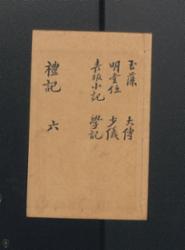 玉藻 大傳
明堂位 少儀
喪服小記 學記
禮記 六